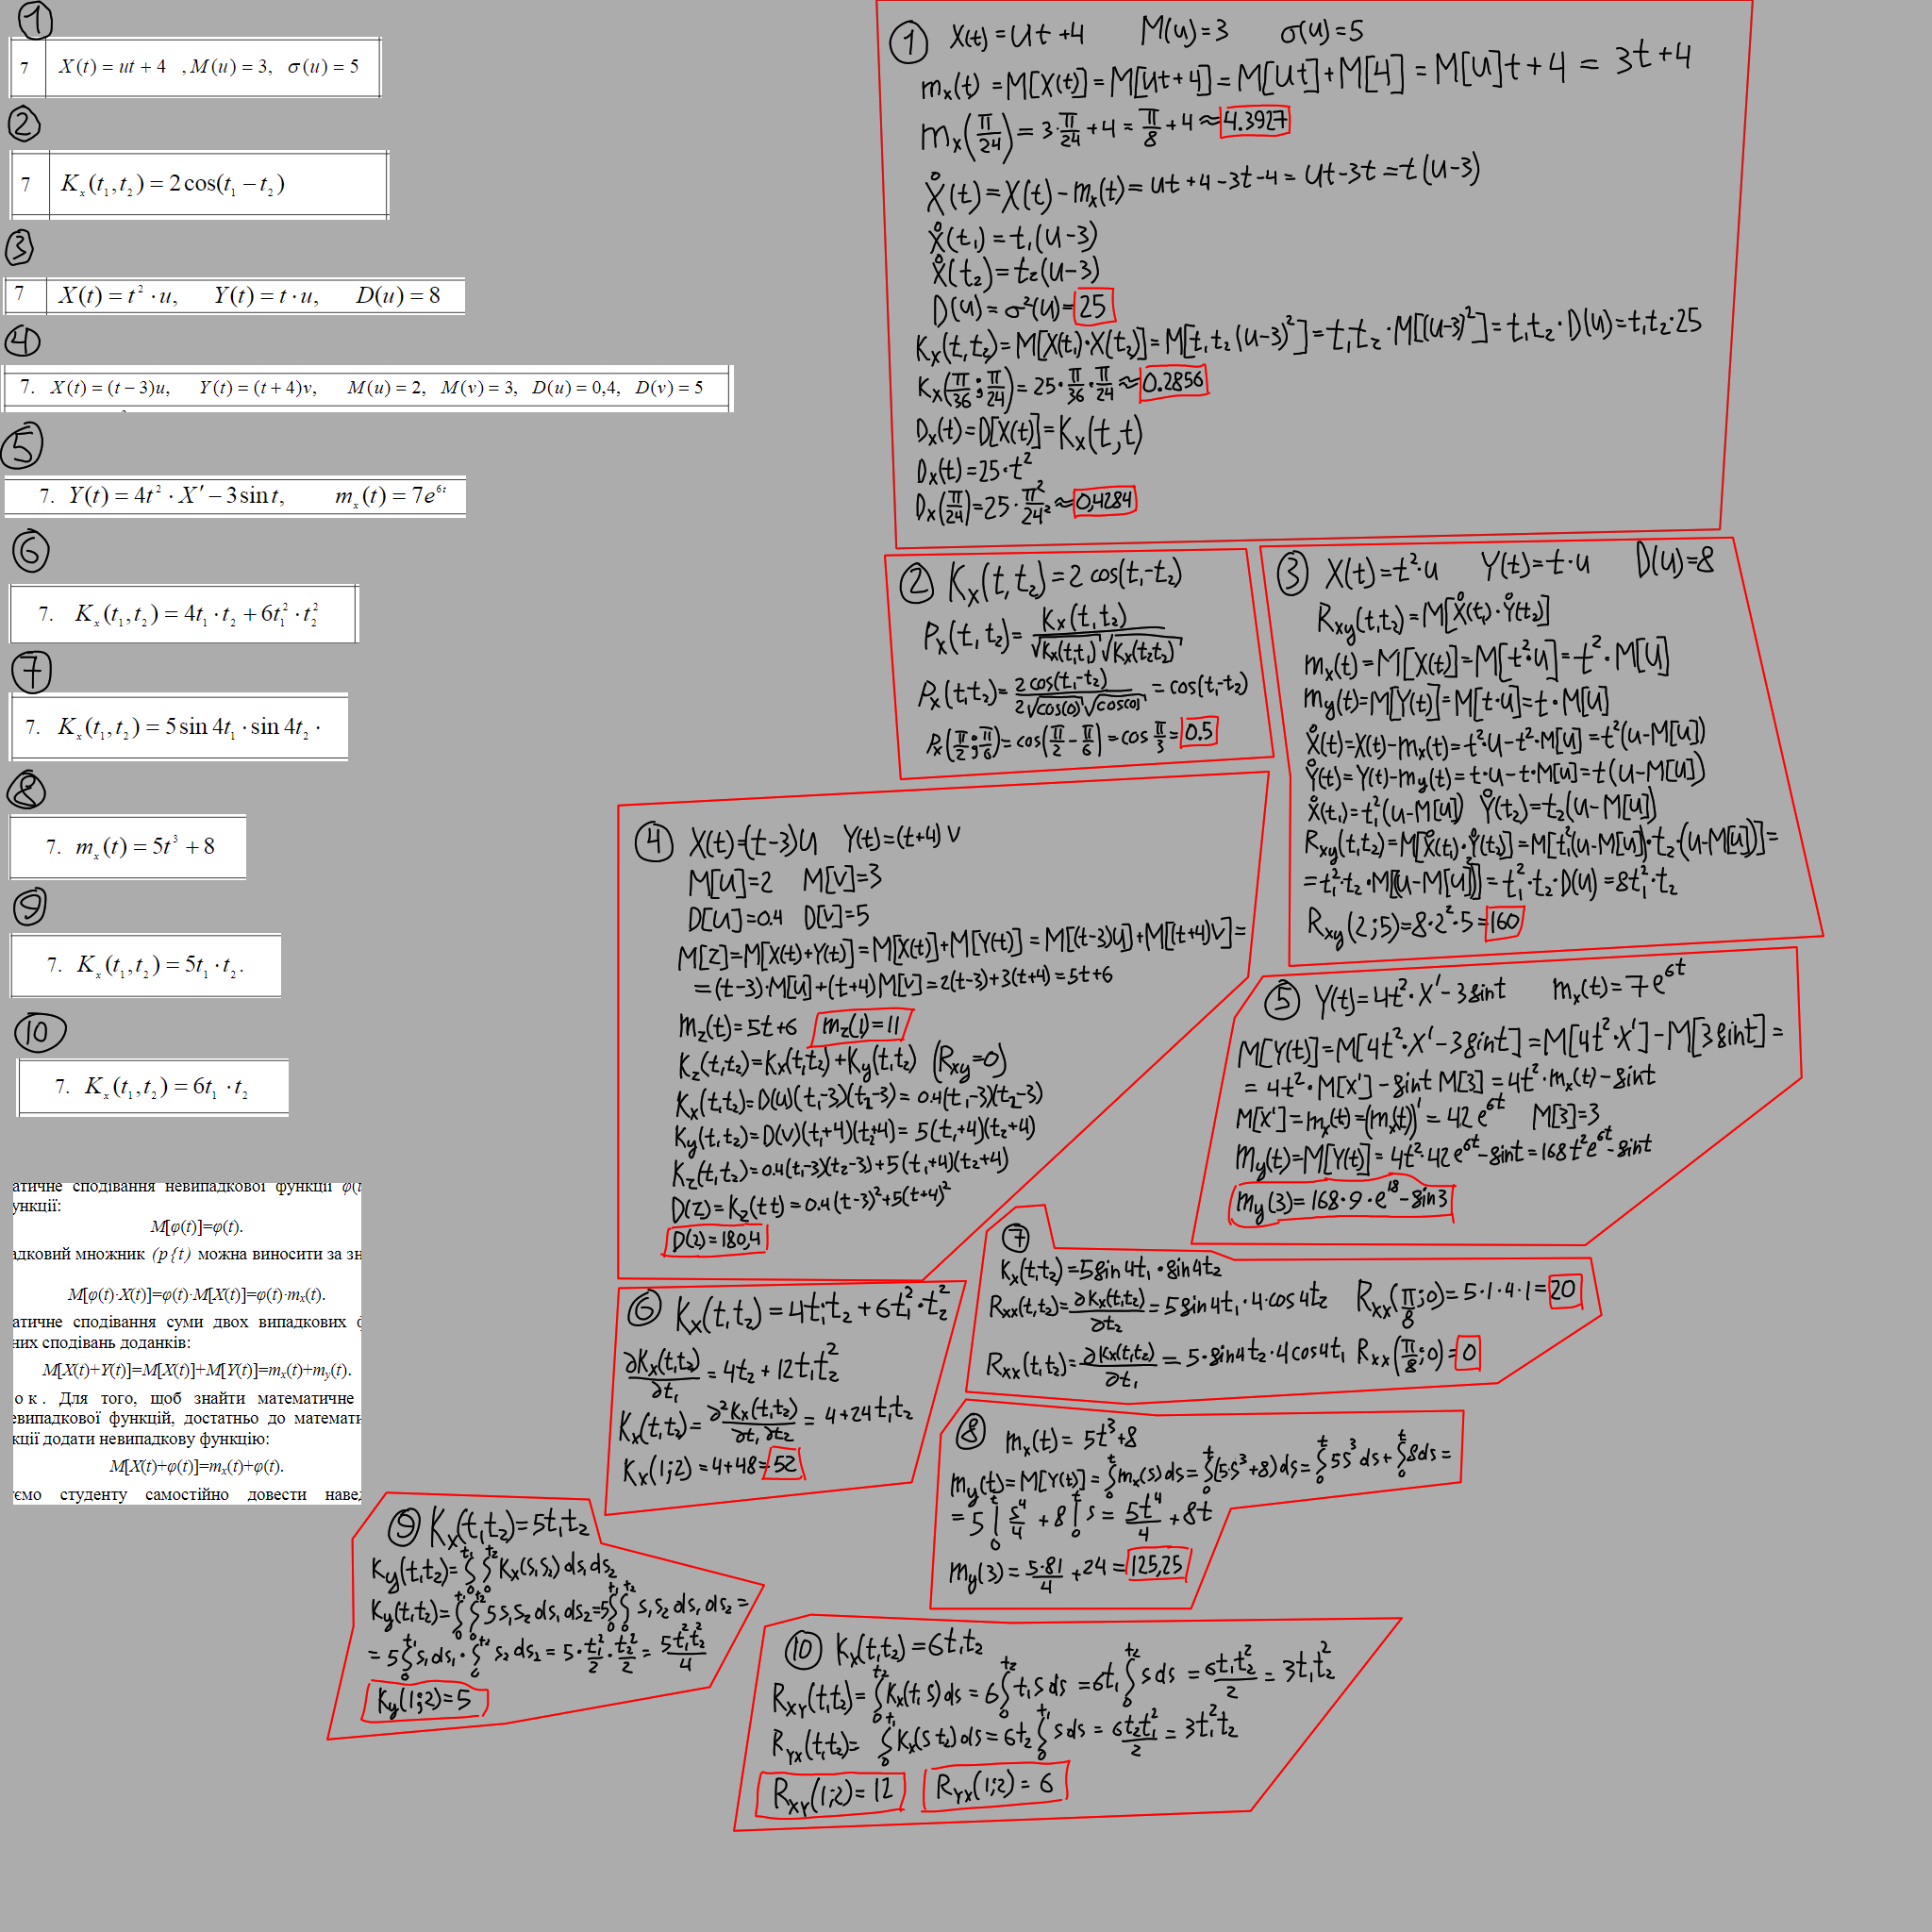 1
7 X(t) = ut + 4 , M(u) = 3, σ(u) = 5
2
7 Kₓ(t₁,t₂) = 2cos(t₁ − t₂)
3
7 X(t) = t² · u, Y(t) = t · u, D(u) = 8
4
7. X(t) = (t − 3)u, Y(t) = (t + 4)v, M(u) = 2, M(v) = 3, D(u) = 0,4, D(v) = 5
5
7. Y(t) = 4t² · X′ − 3sin t, mₓ(t) = 7e^{6t}
6
7. Kₓ(t₁,t₂) = 4t₁ · t₂ + 6t₁² · t₂²
7
7. Kₓ(t₁,t₂) = 5sin 4t₁ · sin 4t₂ ·
8
7. mₓ(t) = 5t³ + 8
9
7. Kₓ(t₁,t₂) = 5t₁ · t₂.
10
7. Kₓ(t₁,t₂) = 6t₁ · t₂
атичне сподівання невипадкової функції φ(t
ункції:
M[φ(t)]=φ(t).
адковий множник (p{t) можна виносити за зн
M[φ(t)·X(t)]=φ(t)·M[X(t)]=φ(t)·mₓ(t).
атичне сподівання суми двох випадкових ф
них сподівань доданків:
M[X(t)+Y(t)]=M[X(t)]+M[Y(t)]=mₓ(t)+m_y(t).
о к . Для того, щоб знайти математичне
евипадкової функцій, достатньо до математи
кції додати невипадкову функцію:
M[X(t)+φ(t)]=mₓ(t)+φ(t).
ємо студенту самостійно довести навед
1 X(t) = Ut + 4 M(u) = 3 σ(u) = 5
mₓ(t) = M[X(t)] = M[Ut+4] = M[Ut] + M[4] = M[U]t + 4 = 3t + 4
mₓ(π/24) = 3·π/24 + 4 = π/8 + 4 ≈ 4.3927
X̊(t) = X(t) − mₓ(t) = Ut + 4 − 3t − 4 = Ut − 3t = t(U−3)
X̊(t₁) = t₁(U−3)
X̊(t₂) = t₂(U−3)
D(U) = σ²(U) = 25
Kₓ(t₁t₂) = M[X̊(t₁)·X̊(t₂)] = M[t₁t₂(U−3)²] = t₁t₂·M[(U−3)²] = t₁t₂·D(U) = t₁t₂·25
Kₓ(π/36; π/24) = 25·π/36·π/24 ≈ 0.2856
Dₓ(t) = D[X(t)] = Kₓ(t,t)
Dₓ(t) = 25·t²
Dₓ(π/24) = 25·π²/24² ≈ 0,4284
2 Kₓ(t₁t₂) = 2 cos(t₁−t₂)
Pₓ(t₁t₂) = Kₓ(t₁t₂)/(√Kₓ(t₁t₁) √Kₓ(t₂t₂))
Pₓ(t₁t₂) = 2cos(t₁−t₂)/(2√cos(0) √cos(0)) = cos(t₁−t₂)
Pₓ(π/2; π/6) = cos(π/2 − π/6) = cos π/3 = 0.5
3 X(t) = t²·u Y(t) = t·u D(u) = 8
Rₓy(t₁t₂) = M[X̊(t)·Y̊(t₂)]
mₓ(t) = M[X(t)] = M[t²·U] = t²·M[U]
m_y(t) = M[Y(t)] = M[t·U] = t·M[U]
X̊(t) = X(t) − mₓ(t) = t²·U − t²·M[U] = t²(U−M[U])
Y̊(t) = Y(t) − m_y(t) = t·U − t·M[U] = t(U−M[U])
X̊(t₁) = t₁²(U−M[U]) Y̊(t₂) = t₂(U−M[U])
Rₓy(t₁t₂) = M[X̊(t₁)·Y̊(t₂)] = M[t₁²(U−M[U])·t₂·(U−M[U])] =
= t₁²·t₂·M[(U−M[U])²] = t₁²·t₂·D(U) = 8t₁²·t₂
Rₓy(2;5) = 8·2²·5 = 160
4 X(t) = (t−3)U Y(t) = (t+4)V
M[U] = 2 M[V] = 3
D[U] = 0.4 D[V] = 5
M[Z] = M[X(t)+Y(t)] = M[X(t)] + M[Y(t)] = M[(t−3)U] + M[(t+4)V] =
= (t−3)·M[U] + (t+4)M[V] = 2(t−3) + 3(t+4) = 5t + 6
m_z(t) = 5t + 6 m_z(1) = 11
K_z(t₁t₂) = Kₓ(t₁t₂) + K_y(t₁t₂) (Rₓy = 0)
Kₓ(t₁t₂) = D(U)(t₁−3)(t₂−3) = 0.4(t₁−3)(t₂−3)
K_y(t₁t₂) = D(V)(t₁+4)(t₂+4) = 5(t₁+4)(t₂+4)
K_z(t₁t₂) = 0.4(t₁−3)(t₂−3) + 5(t₁+4)(t₂+4)
D(Z) = K_z(t t) = 0.4(t−3)² + 5(t+4)²
D(2) = 180,4
5 Y(t) = 4t²·X′ − 3sint mₓ(t) = 7e^{6t}
M[Y(t)] = M[4t²·X′ − 3sint] = M[4t²·X′] − M[3sint] =
= 4t²·M[X′] − sint M[3] = 4t²·mₓ(t) − sint
M[X′] = mₓ(t) = (mₓ(t))′ = 42e^{6t} M[3] = 3
m_y(t) = M[Y(t)] = 4t²·42e^{6t} − sint = 168t²e^{6t} − sint
m_y(3) = 168·9·e^{18} − sin3
6 Kₓ(t₁t₂) = 4t₁t₂ + 6t₁²·t₂²
∂Kₓ(t₁t₂)/∂t₁ = 4t₂ + 12t₁t₂²
Kₓ(t₁t₂) = ∂²Kₓ(t₁t₂)/∂t₁∂t₂ = 4 + 24t₁t₂
Kₓ(1;2) = 4 + 48 = 52
7
Kₓ(t₁t₂) = 5sin4t₁·sin4t₂
Rₓₓ(t₁t₂) = ∂Kₓ(t₁t₂)/∂t₂ = 5sin4t₁·4·cos4t₂ Rₓₓ(π/8; 0) = 5·1·4·1 = 20
Rₓₓ(t₁t₂) = ∂Kₓ(t₁t₂)/∂t₁ = 5·sin4t₂·4cos4t₁ Rₓₓ(π/8; 0) = 0
8 mₓ(t) = 5t³+8
m_y(t) = M[Y(t)] = ∫₀ᵗ mₓ(s)ds = ∫₀ᵗ(5·s³+8)ds = ∫₀ᵗ 5s³ds + ∫₀ᵗ 8ds =
= 5|₀ᵗ s⁴/4 + 8|₀ᵗ s = 5t⁴/4 + 8t
m_y(3) = 5·81/4 + 24 = 125,25
9 Kₓ(t₁t₂) = 5t₁t₂
K_y(t₁t₂) = ∫₀^{t₁}∫₀^{t₂} Kₓ(s₁s₂)ds₁ds₂
K_y(t₁t₂) = ∫₀^{t₁}∫₀^{t₂} 5s₁s₂ds₁ds₂ = 5∫₀^{t₁}∫₀^{t₂} s₁s₂ds₁ds₂ =
= 5∫₀^{t₁} s₁ds₁·∫₀^{t₂} s₂ds₂ = 5·t₁²/2·t₂²/2 = 5t₁²t₂²/4
K_y(1;2) = 5
10 Kₓ(t₁t₂) = 6t₁t₂
R_XY(t₁t₂) = ∫₀^{t₂} Kₓ(t₁s)ds = 6∫₀^{t₂} t₁sds = 6t₁∫₀^{t₂} sds = 6t₁t₂²/2 = 3t₁t₂²
R_YX(t₁t₂) = ∫₀^{t₁} Kₓ(s t₂)ds = 6t₂∫₀^{t₁} sds = 6t₂t₁²/2 = 3t₁²t₂
R_XY(1;2) = 12 R_YX(1;2) = 6